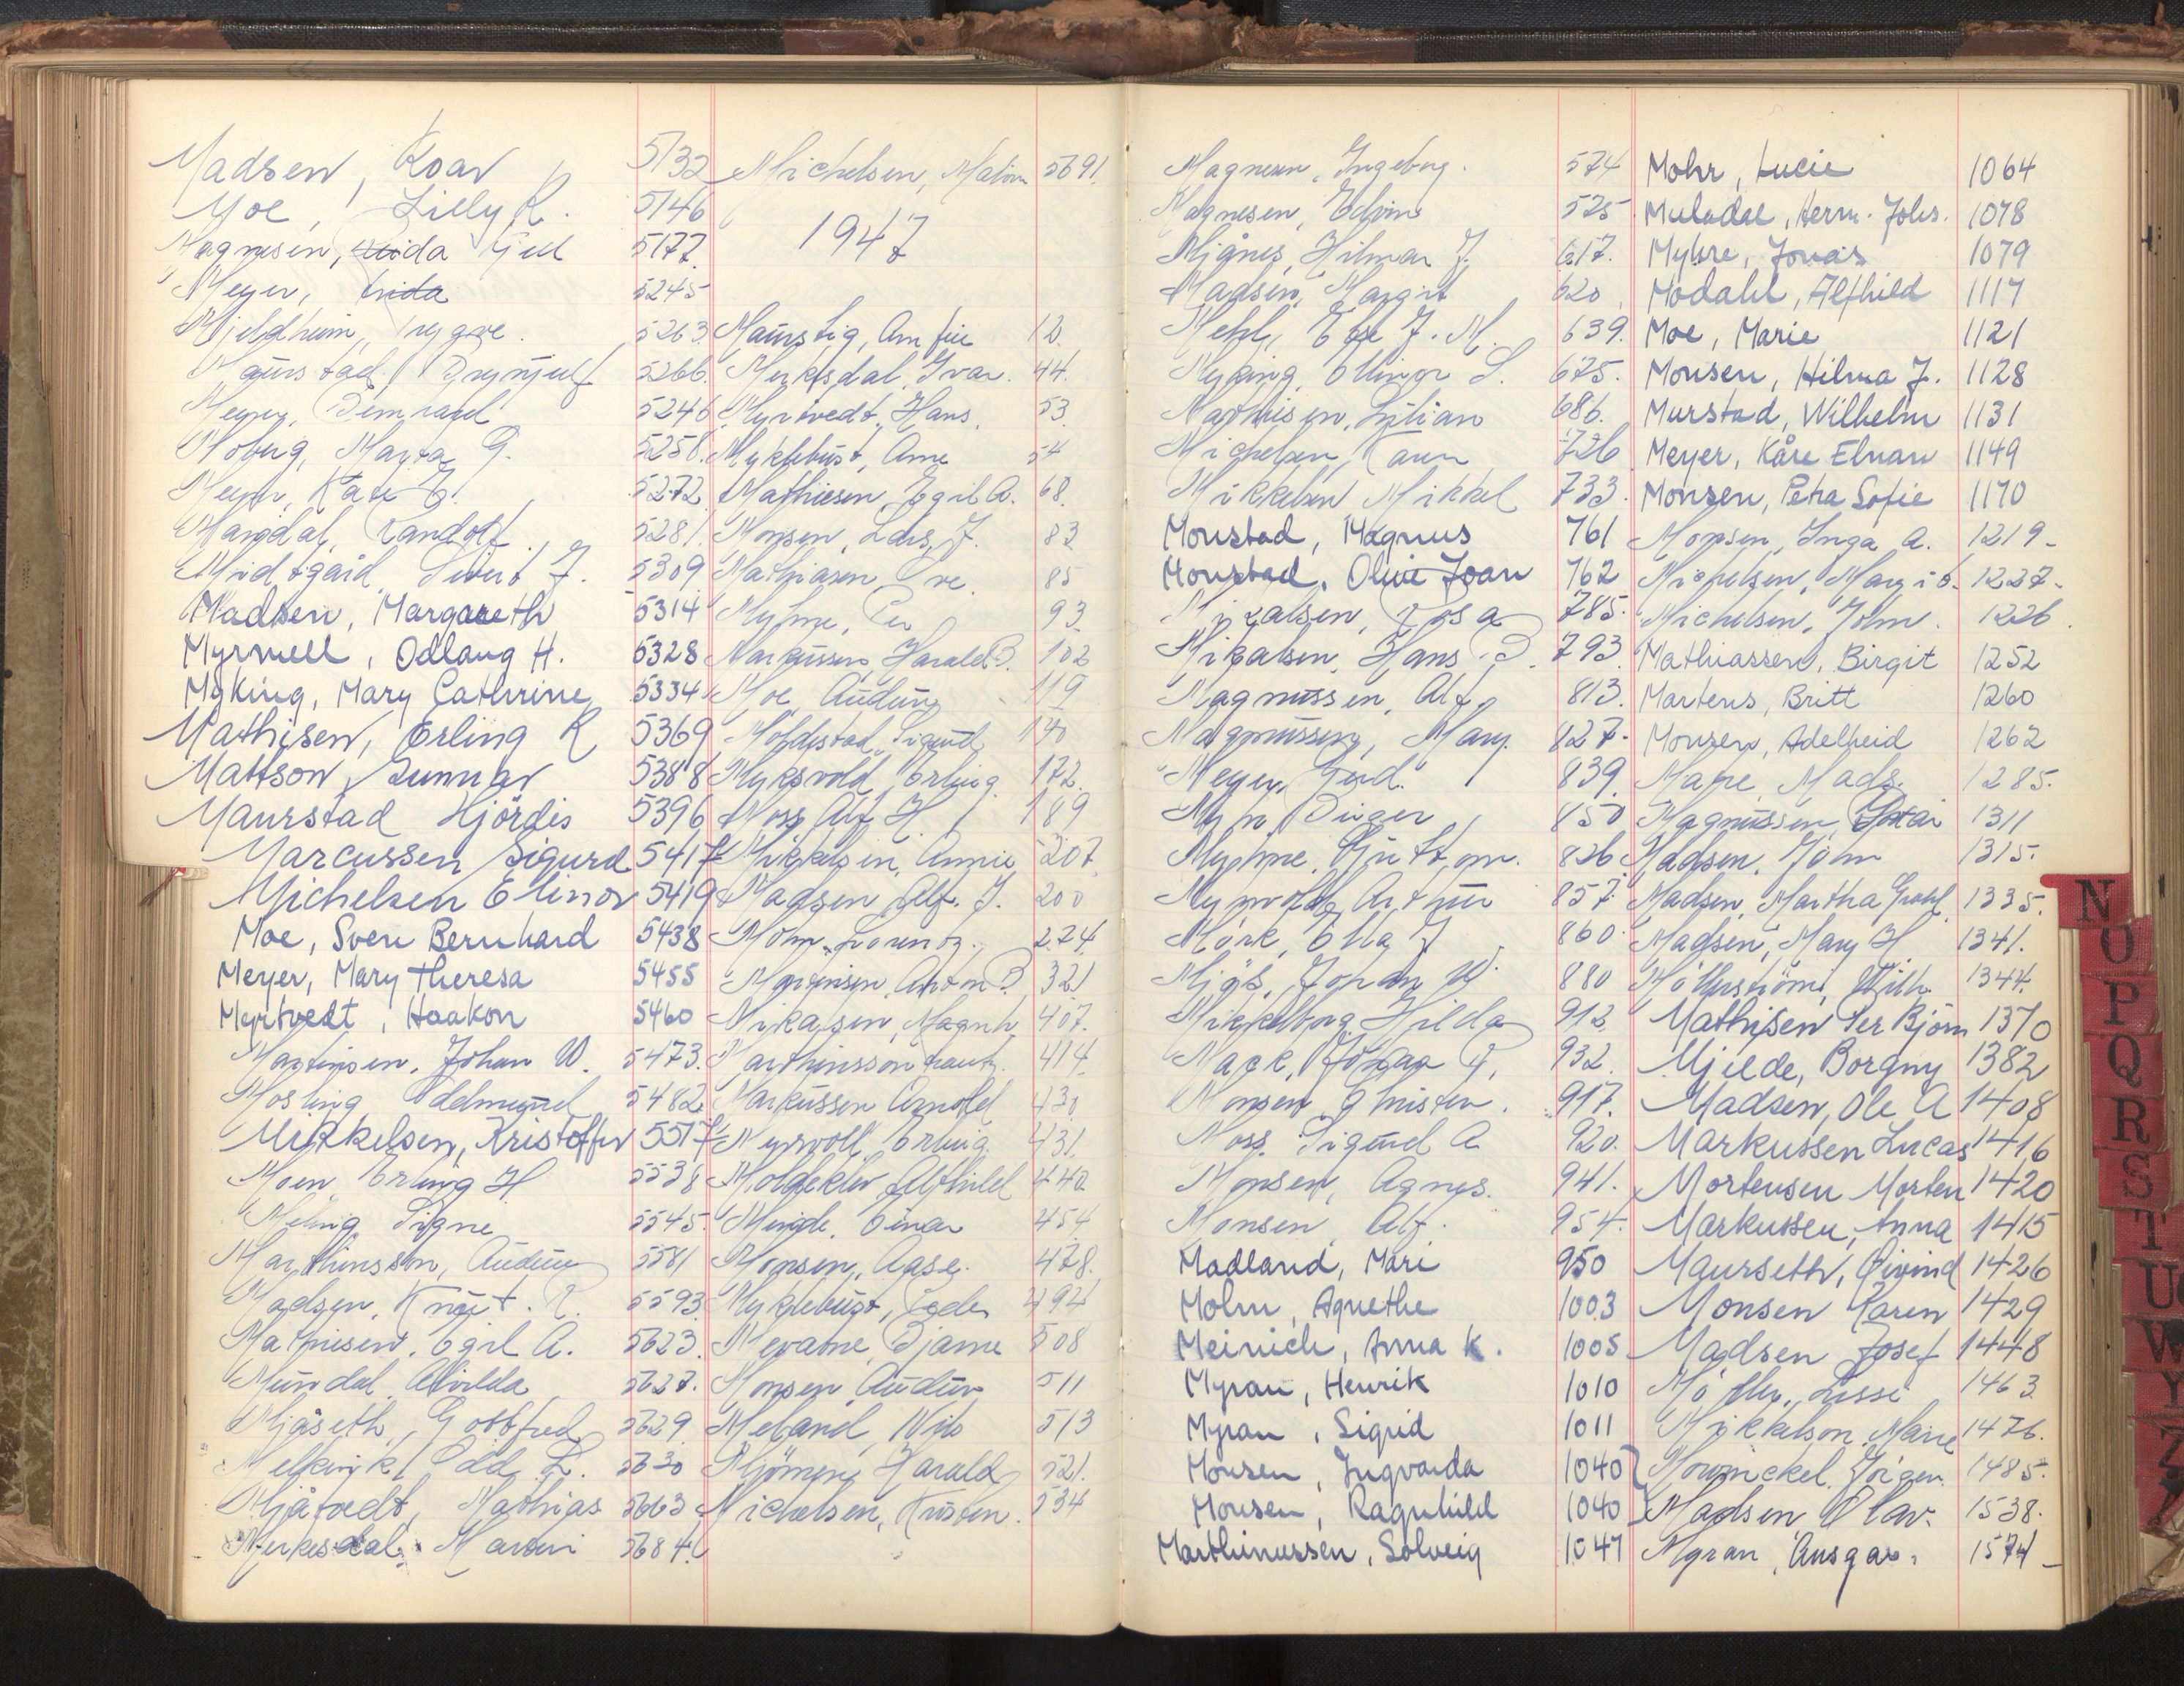 Madsen, Roar 5132
Moe, Lilly R. 5146
Magnesen, 5177
Meyer, Frida 5245
Mjeldheim, Trygve 5263
Maurstad, Brynjulf 5266
Meyer, 5246
Moberg, Marta G. 5258
Meyer, Kåre E. 5272
Mangdal, Randolf 5281
Midtgård, Sivert J. 5309
Madsen, Margareth 5314
Myrmell, Odlaug H. 5328
Myking, Mary Cathrine 5334
Mathisen, Erling R 5369
Mattson, Gunnar 5388
Maurstad Hjördis 5396
Marcussen Sigurd 5417
Michelsen Elinor 5419
Moe, Sven Bernhard 5438
Meyer, Mary Theresa 5455
Myrtvedt, Haakon 5460
Martinsen, Johan W. 5473
Mosling Edelmund 5482
Mikkelsen, Kristoffer 5517
Moen Erling H 5538
Meling Signe 5545
Marthinsson, Audun 5581
Madsen, Knut. R. 5593
Mathiesen, Egil A. 5623
Mundal Alvilda 5627.
Mjåseth, Gottfred 5629
Melkevik, Odd L. 5630
Mjåtvedt, Mathias 5663
Myrkesdal, Martin 5684
Michelsen, 5691
1947
Maurstig, Arnfin 12
Myrkesdal, Ivar 44
Myrtvedt, Hans 53
Myklebust, Arne 54
Mathiesen, Egil A. 68
Monsen, Lars J. 83
Mathiasen, Ove 85
Myhre, Per 93
Markussen, Harald B. 102
Moe, Audun 119
Moldestad, Sigurd 140
Myksvold, Erling 172
Moss, Alf H. 189
Mikkelsen, Annie 207
Madsen Alf. J. 200
Mohn, Lorentz 274
Mortensen, Anton B. 321
Mikalsen, Magnh. 407
Marthinsson 414
Markussen Arnold 430
Myrvoll, Erling 431
Moldeklev, Alfhild 440
Minde, Einar 454
Monsen, Aase 478
Myklebust, Peder 494
Mevatne, Bjarne 508
Monsen Audun 511
Meland, Nils 513
Mjömen, Harald 521
Michelsen, Kristen 534
Magnesen, Ingeborg. 574
Magnesen, Edvin 525
Mjånes, Hilmar J. 617
Madsen, Margit 620
Mehl, Ebbe J. M. 639
Myking, Ellinor S. 675
Mathisen, Lilian 686
Michelsen, Karen 726
Mikkelsen Mikkel 733
Monstad, Magnus 761
Monstad, Olive Joan 762
Mikalsen, Rosa 785
Mikalsen, Hans B. 793
Magnussen, Alf 813
Magnussen, Mary 827
Meyer, Gerd 839
Myhr, Birger 850
Myhre, Guttorm 826
Myrvold, Arthur 857
Mörk, Ella J 860
Mjös, Johan W. 880
Mikkelborg Hilda 912
Mack, 932
Monsen, Christen 917
Moss, Sigurd A 920
Monsen, Agnes 941
Monsen, Alf 954
Madland, Mari 950
Molin, Agnethe 1003
Meinich, Anna K. 1005
Myran, Henrik 1010
Myran, Sigrid 1011
Monsen, Ingvarda 1040
Monsen, Ragnhild 1040
Marthinussen, Solveig 1047
Mohr, Lucie 1064
Muladal, Herm. Johs. 1078
Myhre, Jonas 1079
Modahl, Alfhild 1117
Moe, Marie 1121
Monsen, Hilma J. 1128
Murstad, Wilhelm 1131
Meyer, Kåre Elnan 1149
Monsen, Petra Sofie 1170
Monsen, Inga A. 1219
Michelsen, Margit 1227
Michelsen, John 1226
Mathiassen, Birgit 1252
Martens, Britt 1260
Monsen, Adelheid 1262
Mads. 1285
Magnussen, 1311
Madsen, John 1315
Madsen, Martha 1335
Madsen, Mary H 1341
1344
Mathisen Per Bjørn 1370
Mjelde, Borgny 1382
Madsen, Ole A 1408
Markussen Lucas 1416
Mortensen Morten 1420
Markussen, Anna 1415
Maurseth, Øivind 1426
Monsen Karen 1429
Madsen Josef 1448
Möller, Lissi 1463
Mikkelson, Marie 1476
Mowinckel, Jörgen 1485
Madsen Olav. 1538
Myran, Ansgar. 1574
N
O
P
Q
R
S
T
U
W
Y
Z